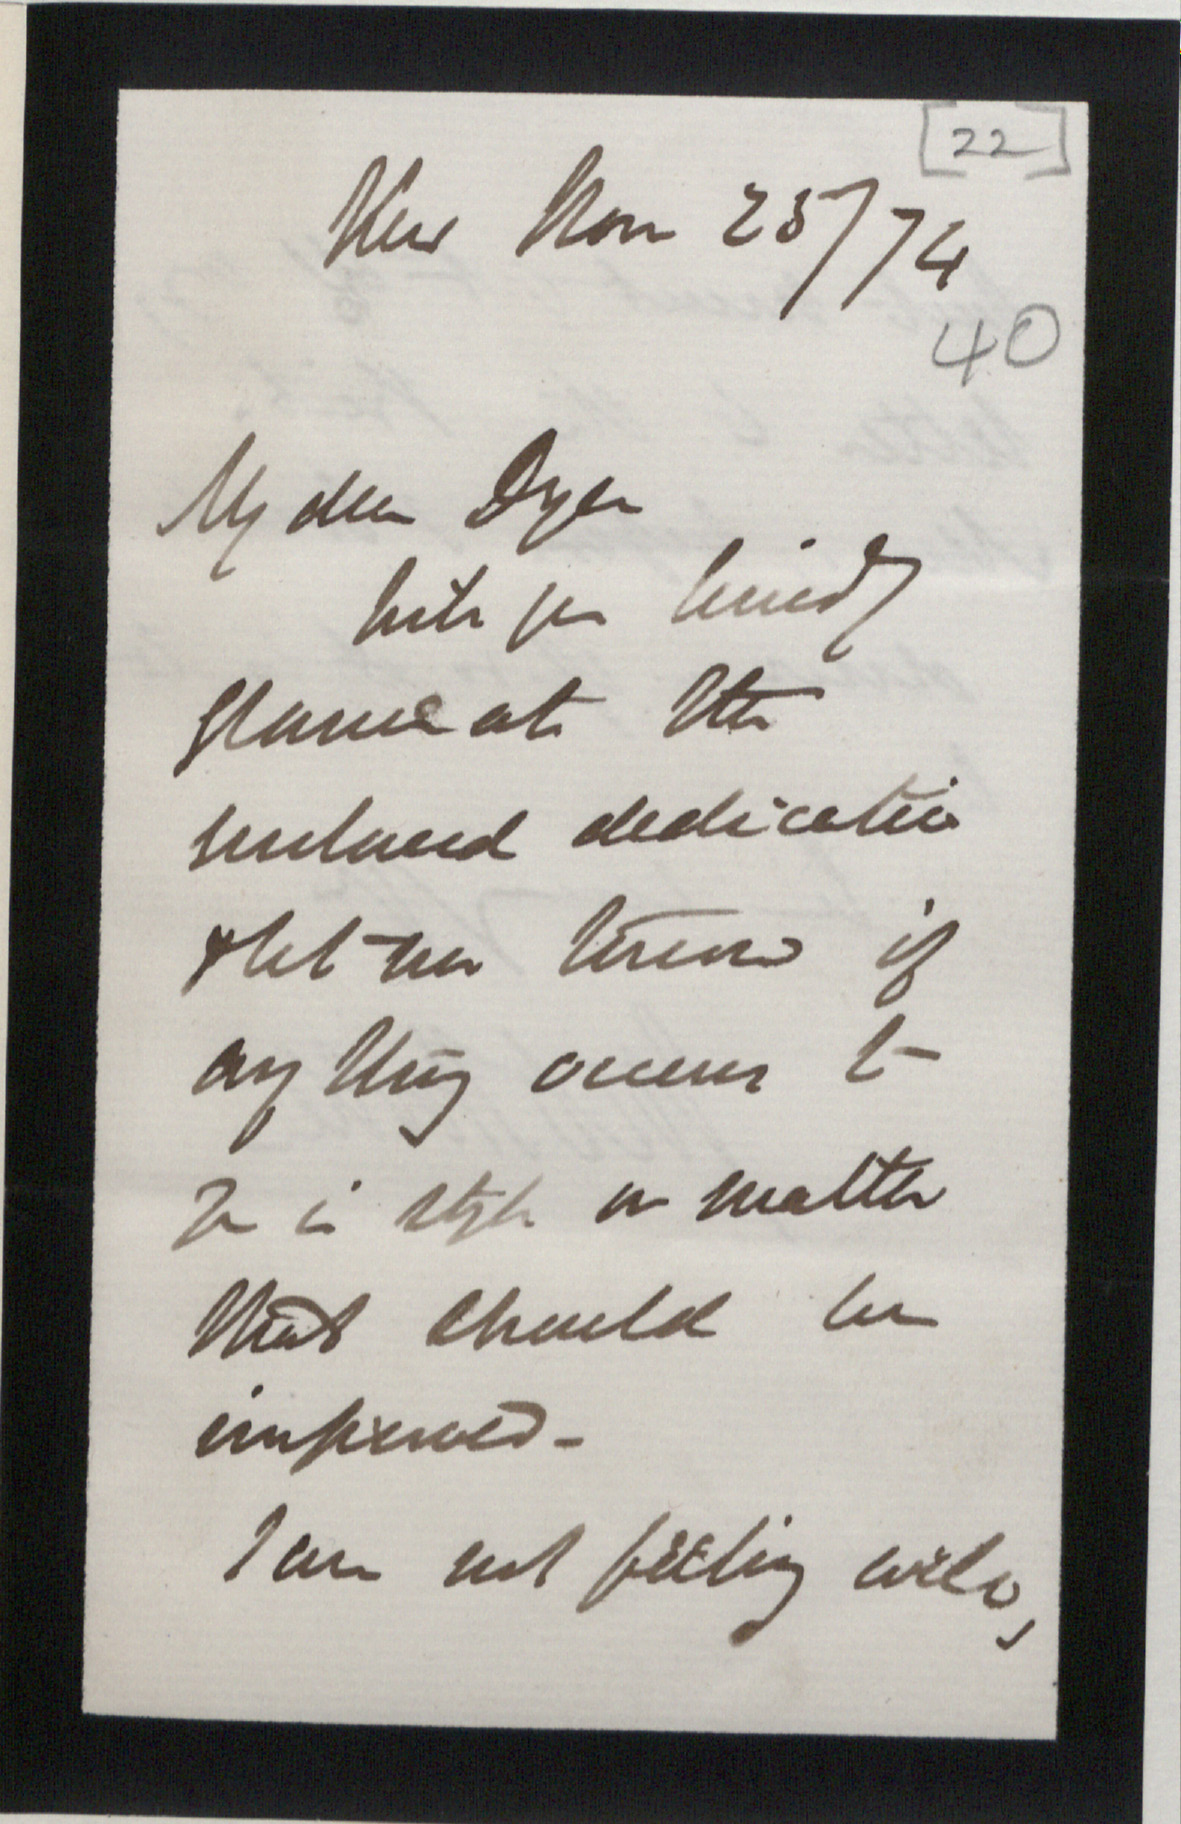 [22]
Kew Nov 25/74
40
My dear Dyer
Will you kindly
glance at the
enclosed dedication
& let me know if
any thing occurs to
you in style or matter
that should be
improved -
I am not feeling well,